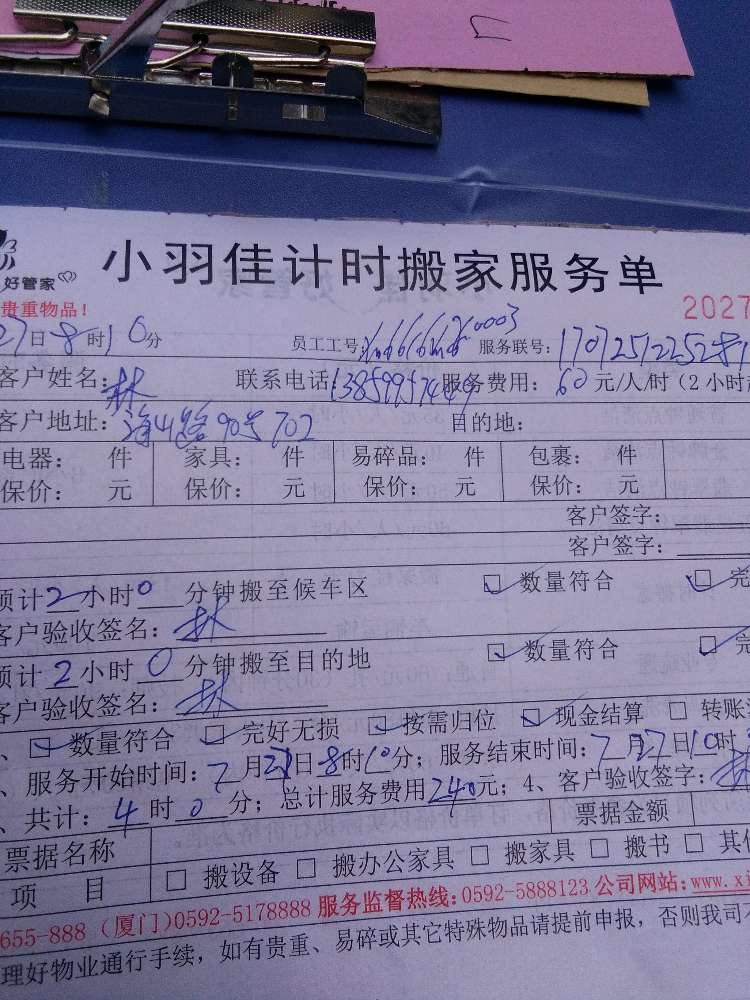 小羽佳计时搬家服务单
好管家
贵重物品！
2027
27日8时10分 员工工号: 0003 服务联号:
客户姓名:林 联系电话: 服务费用:60元/人/时（2小时
客户地址: 路90号702 目的地:
电器: 件 家具: 件 易碎品: 件 包裹: 件
保价: 元 保价: 元 保价: 元 保价: 元
客户签字:
客户签字:
预计2小时0分钟搬至候车区 ☑数量符合 ☑完
客户验收签名:林
预计2小时0分钟搬至目的地 ☑数量符合 ☑完
客户验收签名:林
、☑数量符合 ☑完好无损 ☑按需归位 ☑现金结算 □转账
、服务开始时间:7月27日8时10分；服务结束时间:7月27日10时
、共计:4时0分；总计服务费用240元；4、客户验收签字:林
票据名称 票据金额
项 目 □搬设备 □搬办公家具 □搬家具 □搬书 □其他
655-888 (厦门)0592-5178888 服务监督热线:0592-5888123 公司网站:www.xi
理好物业通行手续，如有贵重、易碎或其它特殊物品请提前申报，否则我司